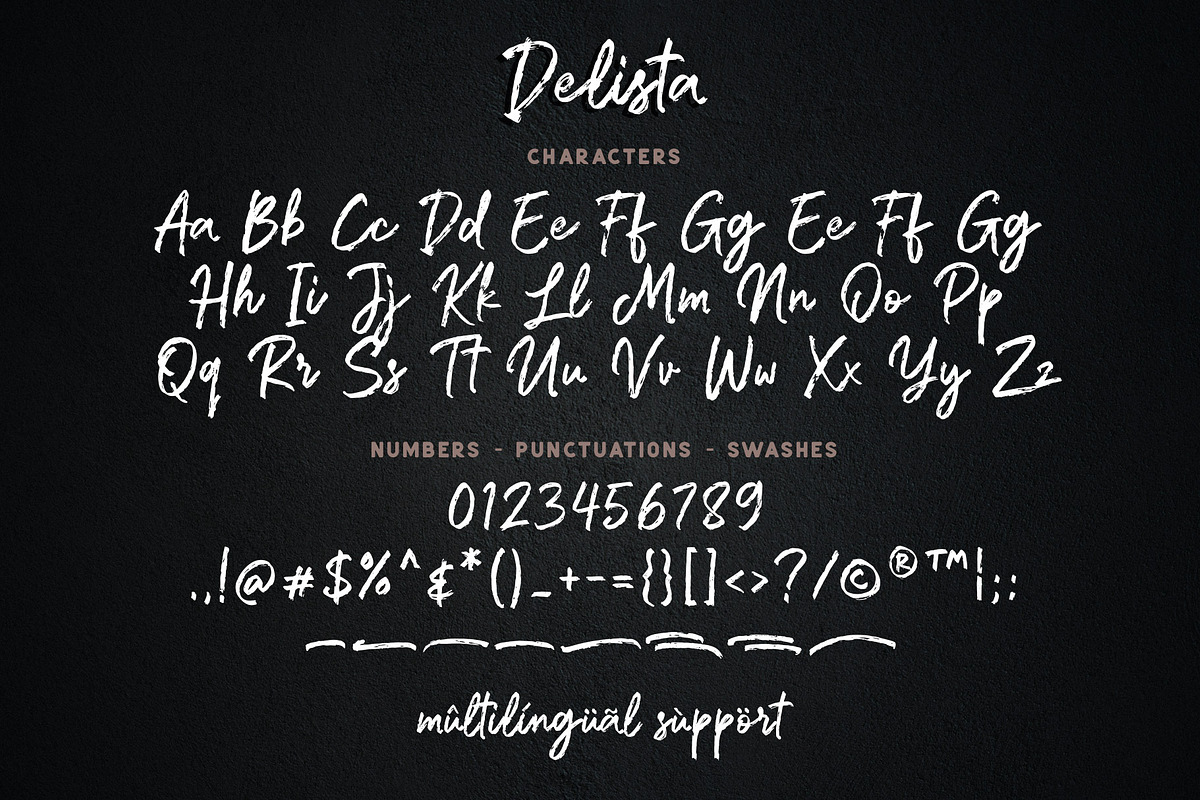 Delista
CHARACTERS
Aa Bb Cc Dd Ee Ff Gg Ee Ff Gg
Hh Ii Jj Kk Ll Mm Nn Oo Pp
Qq Rr Ss Tt Uu Vv Ww Xx Yy Zz
NUMBERS - PUNCTUATIONS - SWASHES
0123456789
.,!@#$%^&*()_+-={}[]<>?/©®™|;:
mûltilíngüãl sùppört